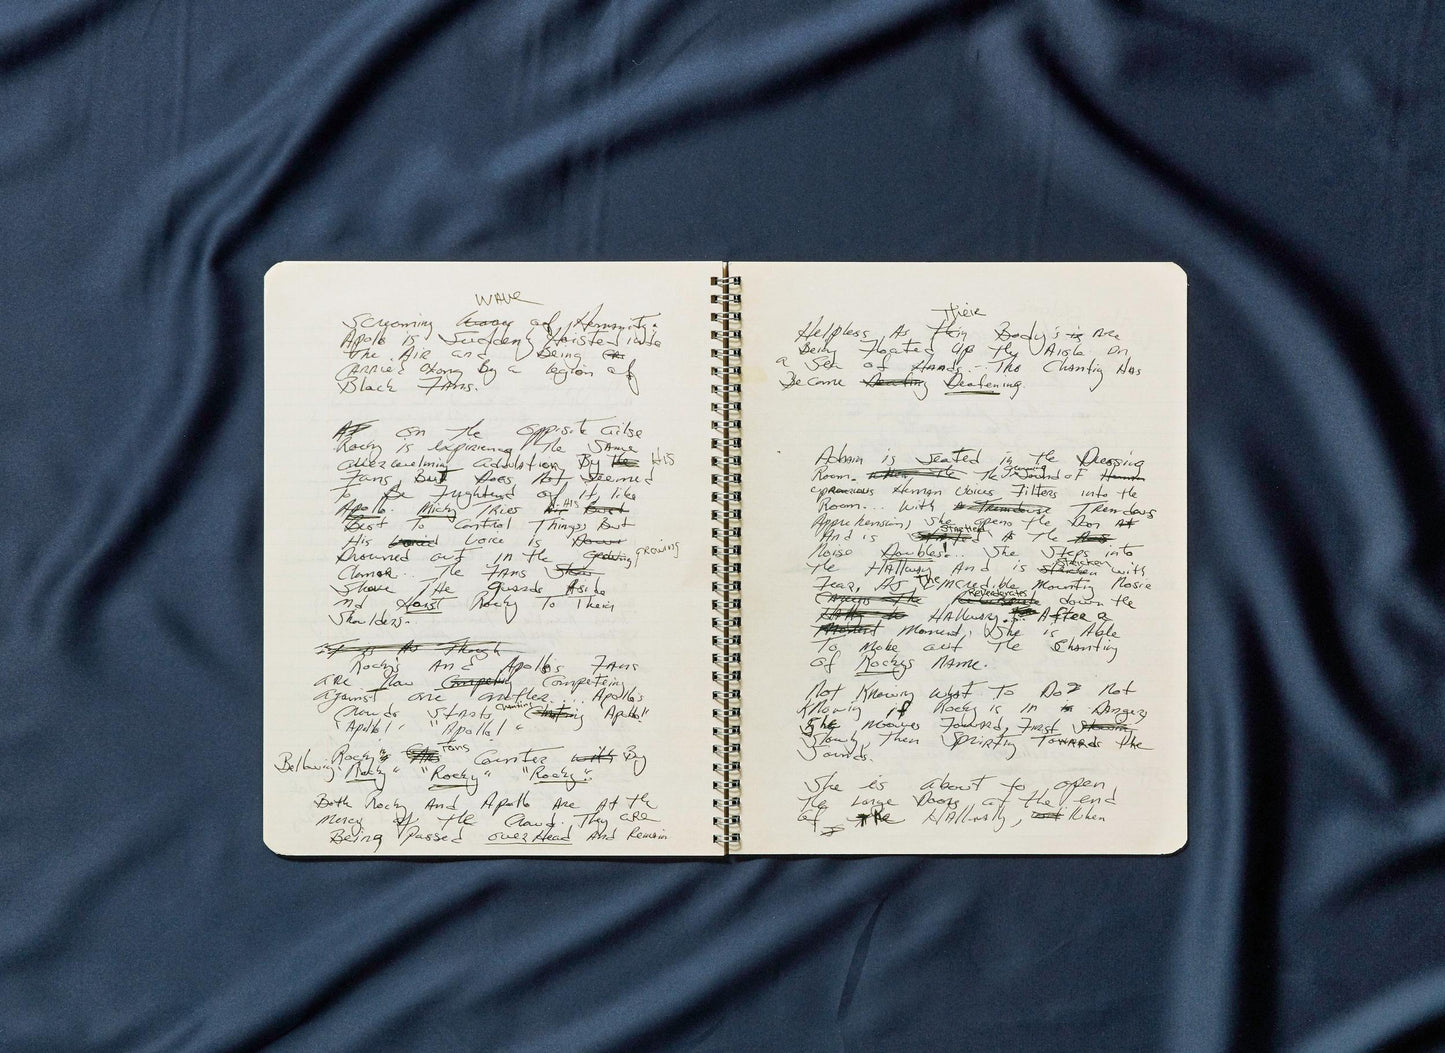 wave
Screaming of Humanity.
Apollo is Suddenly Hoisted into
The Air and Being
CARRIED Along By a legion of
Black Fans.
on The opposite
Rocky is experiencing The SAme
overwhelming adulation By the HIS
Fans But Does Not Seemed
To Be Frightend of it, like
Apollo. Micky TRies His
Best To Control Things, But
His Voice is
Drowned out in the growing growing
Clamor... The FAns
Shove The guards Aside
nd Hoist Rocky To Their
Shoulders.
It is As Though
Rocky's And Apollo's Fans
ARe Now Competing Competeing
against one another... Apollo's
Crowds Starts Chanting Chanting "Apollo"
"Apollo" "Apollo"
Rocky's Fans Counter with By
Bellowing "Rocky" "Rocky" "Rocky".
Both Rocky And Apollo Are At the
mercy of the Crowd. They ARe
Being Passed over Head And Remain
Their
Helpless As Body's is Are
Being Floated Up The Aisle on
a Sea of HAnds... The Chanting Has
Become Deafening.
Adrian is Seated in the Dressing
Room. when The The Sound of Human
Human Voices Filters into the
Room... With Tremdous
Apprehension, she opens the Door
And is Startled As The
Noise Doubles!... She Steps into
The HAllway And is Stricken with
Fear, As The Incredible Mounting Nosie
down the
HAllway... After a
Moment Moment, She is Able
To Make out The Chanting
of Rockys NAme.
Not Knowing What To Do? Not
Knowing if Rocky is in Danger,
She Moves Foward, First
Slowly, Then Sprinting Towards the
Sounds.
She is about to open
The Large Doors at the end
of The HAllway, When